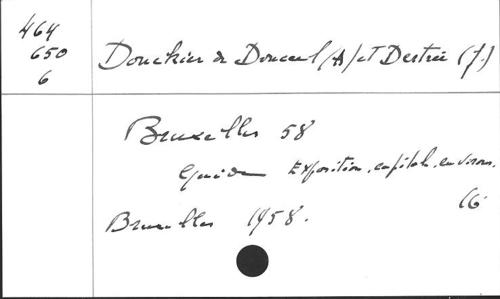 464
650
6
Donckier de Donceel (A) et Destrée (J.)
Bruxelles 58
Guide Exposition, capitale, environs.
16
Bruxelles 1958.